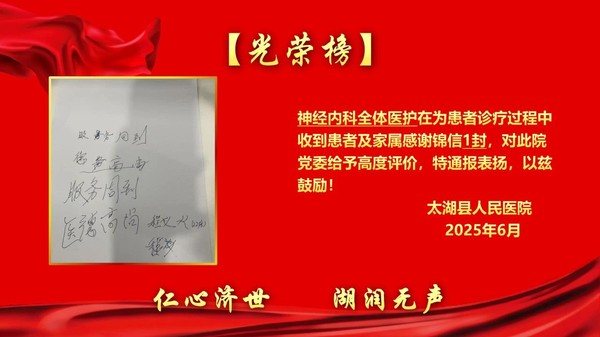 【光荣榜】
服务周到
服务高尚
服务周到
医德高尚
神经内科全体医护在为患者诊疗过程中
收到患者及家属感谢锦信1封，对此院
党委给予高度评价，特通报表扬，以兹
鼓励！
太湖县人民医院
2025年6月
仁心济世 湖润无声